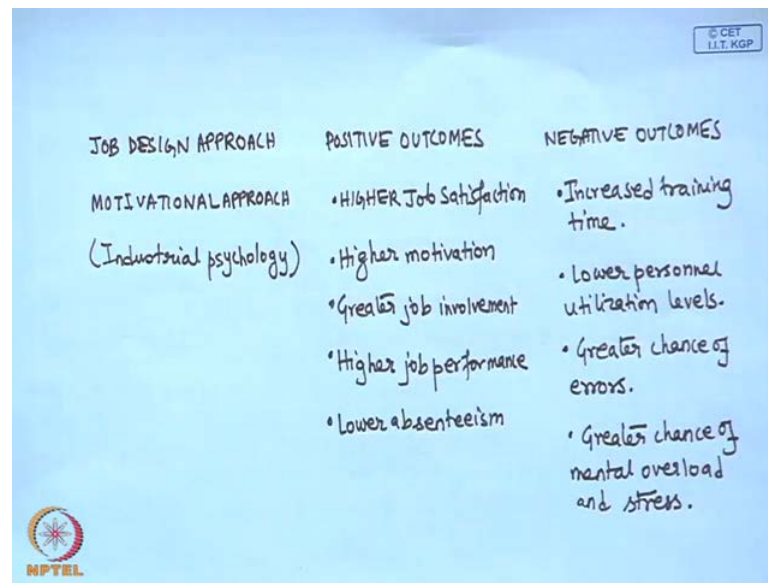 © CET
I.I.T. KGP
JOB DESIGN APPROACH
MOTIVATIONAL APPROACH
(Industrial psychology)
POSITIVE OUTCOMES
• HIGHER Job Satisfaction
• Higher motivation
• Greater job involvement
• Higher job performance
• Lower absenteeism
NEGATIVE OUTCOMES
• Increased training
time.
• Lower personnel
utilization levels.
• Greater chance of
errors.
• Greater chance of
mental overload
and stress.
NPTEL